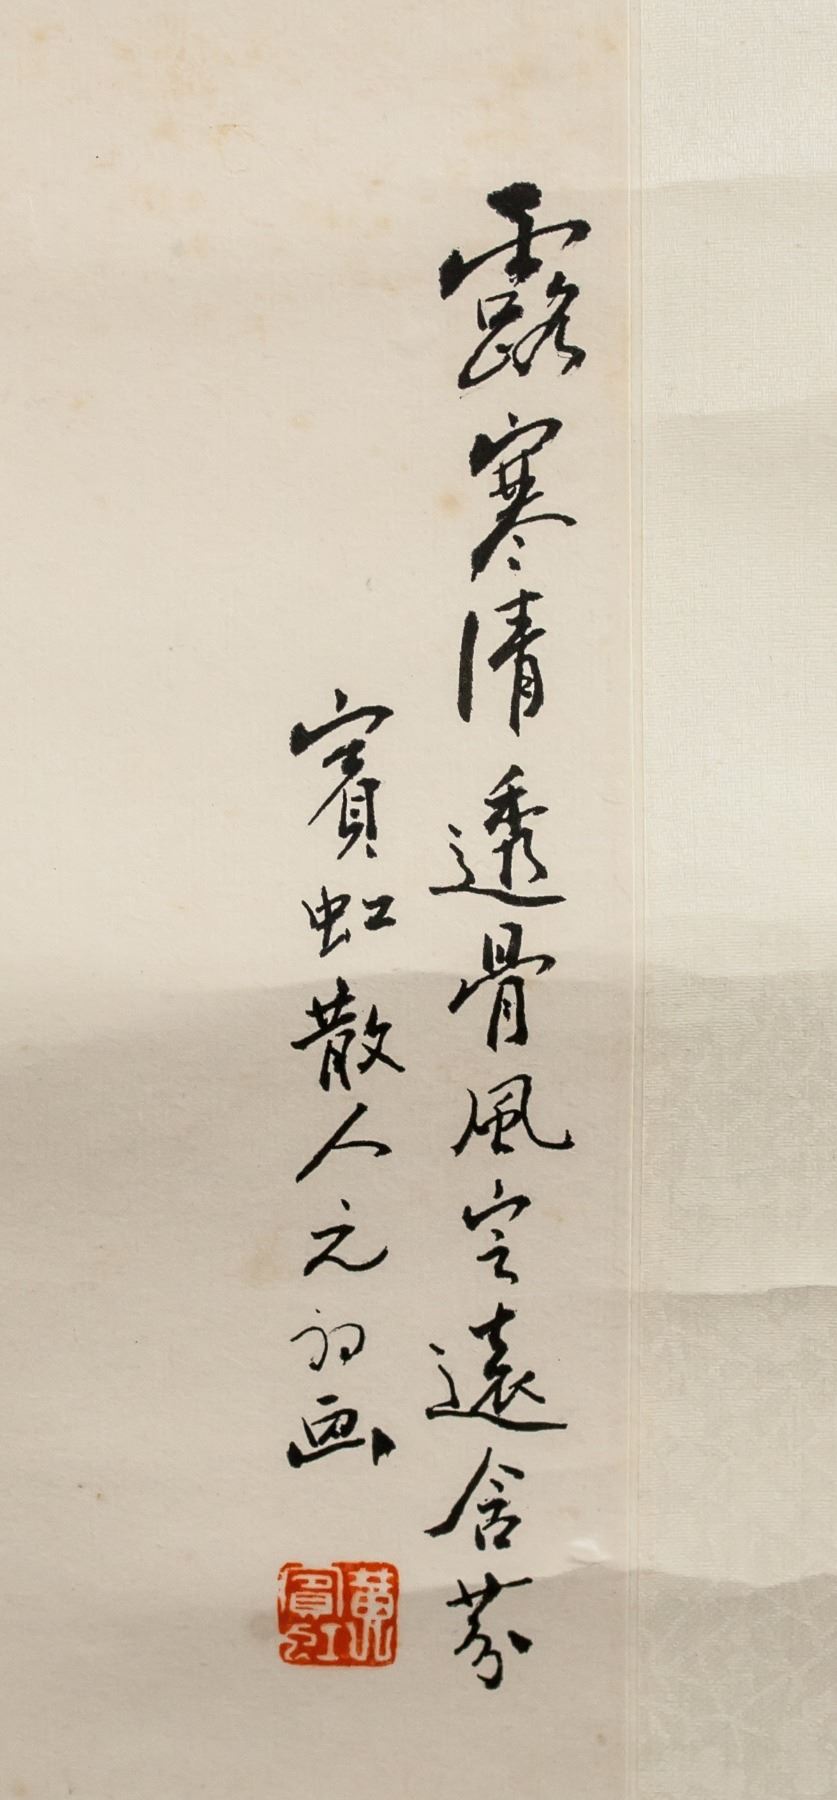 露寒清透骨風定遠含芬
賓虹散人元初画
黃賓虹